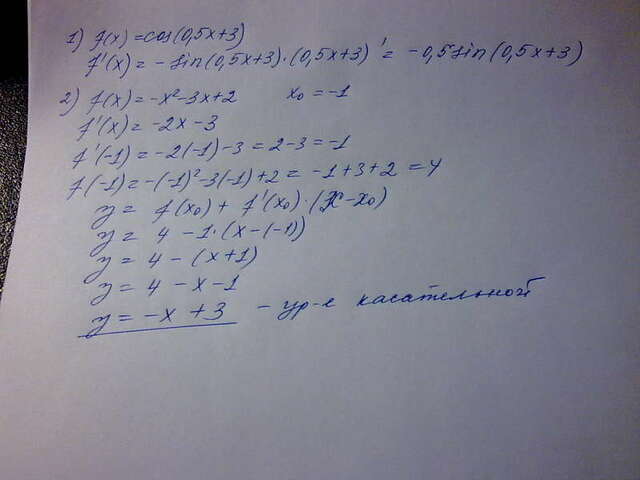 1) f(x) = cos(0,5x+3)
f'(x) = - sin(0,5x+3)·(0,5x+3)' = -0,5sin(0,5x+3)
2) f(x) = -x²-3x+2 x₀ = -1
f'(x) = -2x-3
f'(-1) = -2(-1)-3 = 2-3 = -1
f(-1) = -(-1)²-3(-1)+2 = -1+3+2 = 4
y = f(x₀) + f'(x₀)·(x-x₀)
y = 4 -1·(x-(-1))
y = 4 - (x+1)
y = 4 - x - 1
y = -x + 3 - ур-е касательной